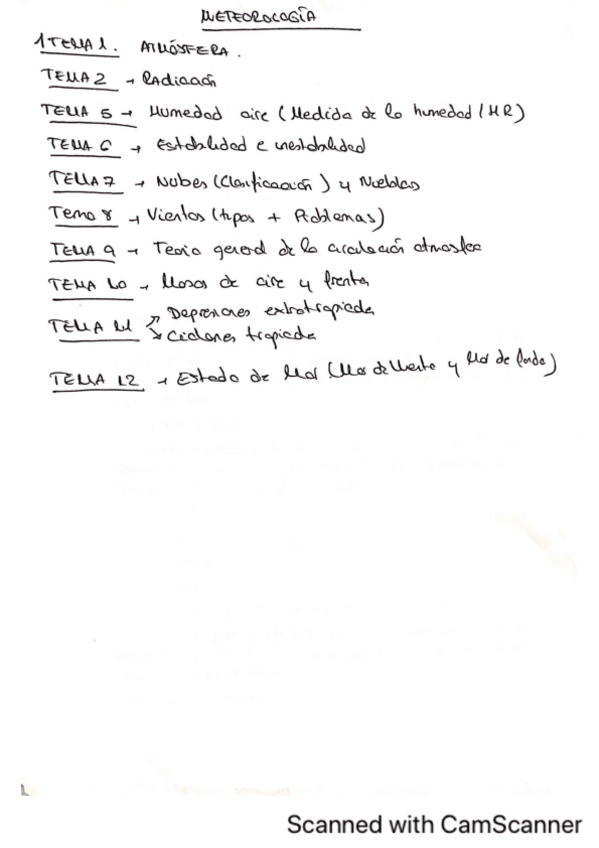 METEOROLOGÍA
1 TEMA 1. ATMÓSFERA.
TEMA 2 → Radiación
TEMA 5 → Humedad aire (Medida de la humedad / HR)
TEMA 6 → Estabilidad e inestabilidad
TEMA 7 → Nubes (Clasificación) y Nieblas
Tema 8 → Vientos (tipos + Problemas)
TEMA 9 → Teoria general de la circulación atmosfera
TEMA 10 → Masas de aire y frentes
TEMA 11 ↗ Depresiones extratropicales
↘ Ciclones tropicales
TEMA 12 → Estado de Mar (Mar de Viento y Mar de fondo)
Scanned with CamScanner